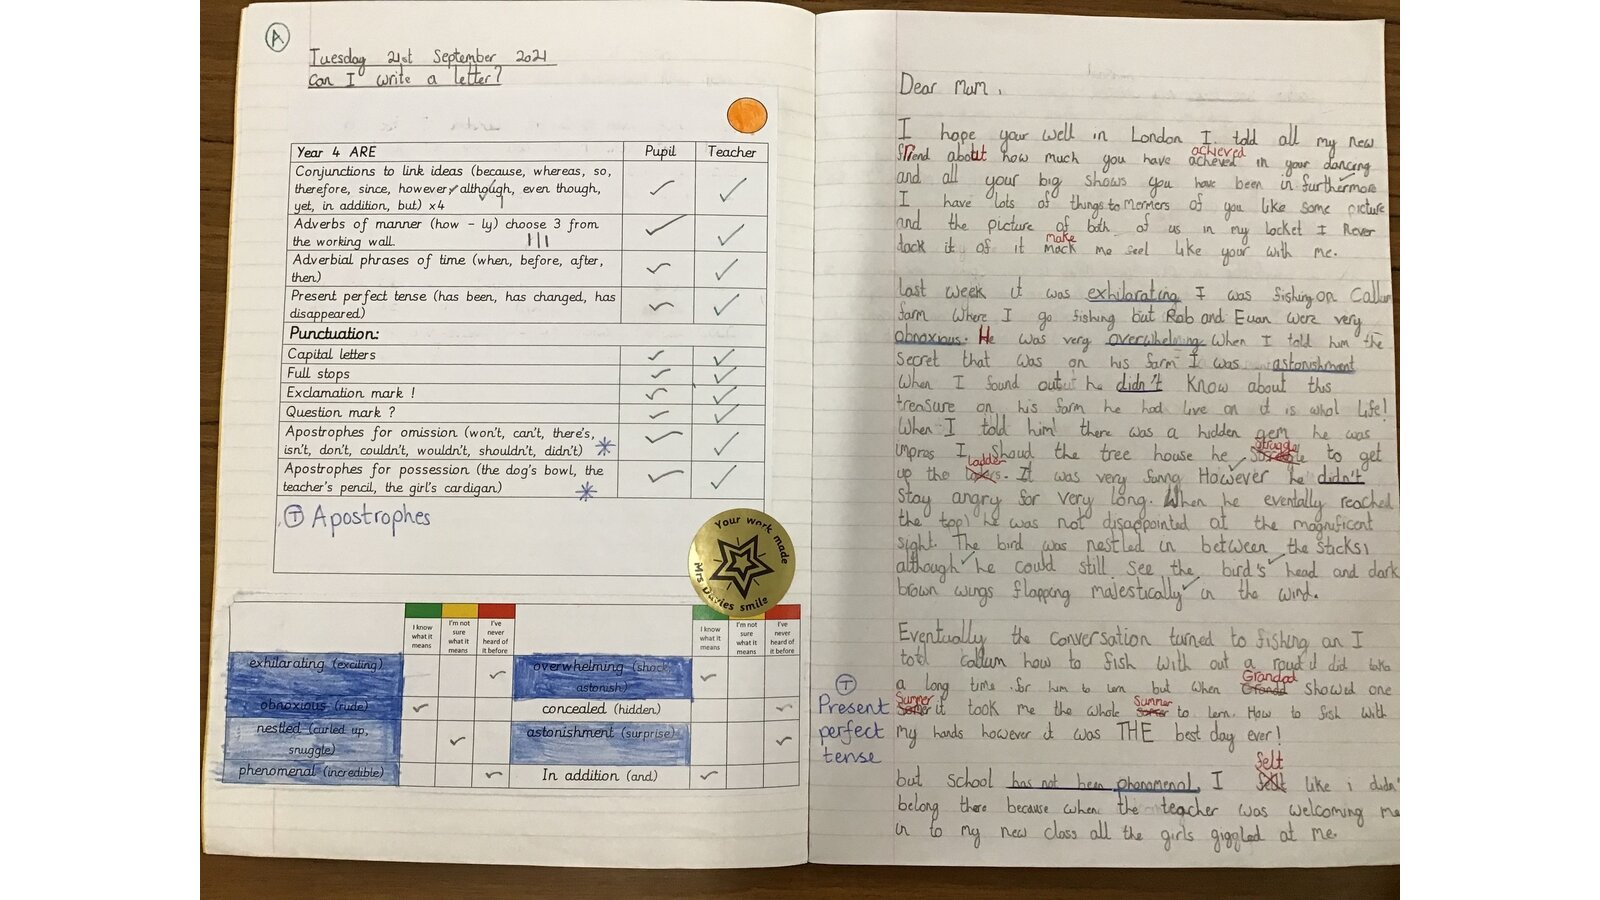 A
Tuesday 21st September 2021
Can I write a letter?
Year 4 ARE Pupil Teacher
Conjunctions to link ideas (because, whereas, so,
therefore, since, however, although, even though,
yet, in addition, but) x4
Adverbs of manner (how – ly) choose 3 from
the working wall.
Adverbial phrases of time (when, before, after,
then)
Present perfect tense (has been, has changed, has
disappeared)
Punctuation:
Capital letters
Full stops
Exclamation mark !
Question mark ?
Apostrophes for omission (won't, can't, there's,
isn't, don't, couldn't, wouldn't, shouldn't, didn't)
Apostrophes for possession (the dog's bowl, the
teacher's pencil, the girl's cardigan)
T Apostrophes
Your work made
Mrs Davies smile
I know what it means
I'm not sure what it means
I've never heard of it before
I know what it means
I've never heard of it before
exhilarating (exciting)
overwhelming (shock, astonish)
obnoxious (rude)
concealed (hidden)
nestled (curled up, snuggle)
astonishment (surprise)
phenomenal (incredible)
In addition (and)
Dear Mum,
I hope your well in London I told all my new
friend about how much you have achieved in your dancing
and all your big shows you have been in furthermore
I have lots of things to mermers of you like some picture
and the picture of both of us in my locket I never
tack it of it make me feel like your with me.
last week it was exhilarating I was fishing on Callum
farm where I go fishing but Rob and Euan were very
obnoxious. He was very overwhelming when I told him the
secret that was on his farm I was astonishment
when I found out he didn't know about this
treasure on his farm he had live on it is whol life!
When I told him! there was a hidden gem he was
impres I shoud the tree house he struggle to get
up the ladder. It was very funny However he didn't
stay angry for very long. When he eventally reached
the top! he was not disappointed at the magnificent
sight. The bird was nestled in between the sticks,
although he could still see the bird's head and dark
brown wings flapping majestically in the wind.
Eventually the conversation turned to fishing an I
told callum how to fish with out a it did take
a long time for him to lern but when Grandad showed one
Summer it took me the whole Summer to lern. How to fish with
my hands however it was THE best day ever!
T Present
perfect
tense
but school has not been phanomenal, I felt like i didn'
belong there because when the teacher was welcoming me
in to my new class all the girls giggled at me.